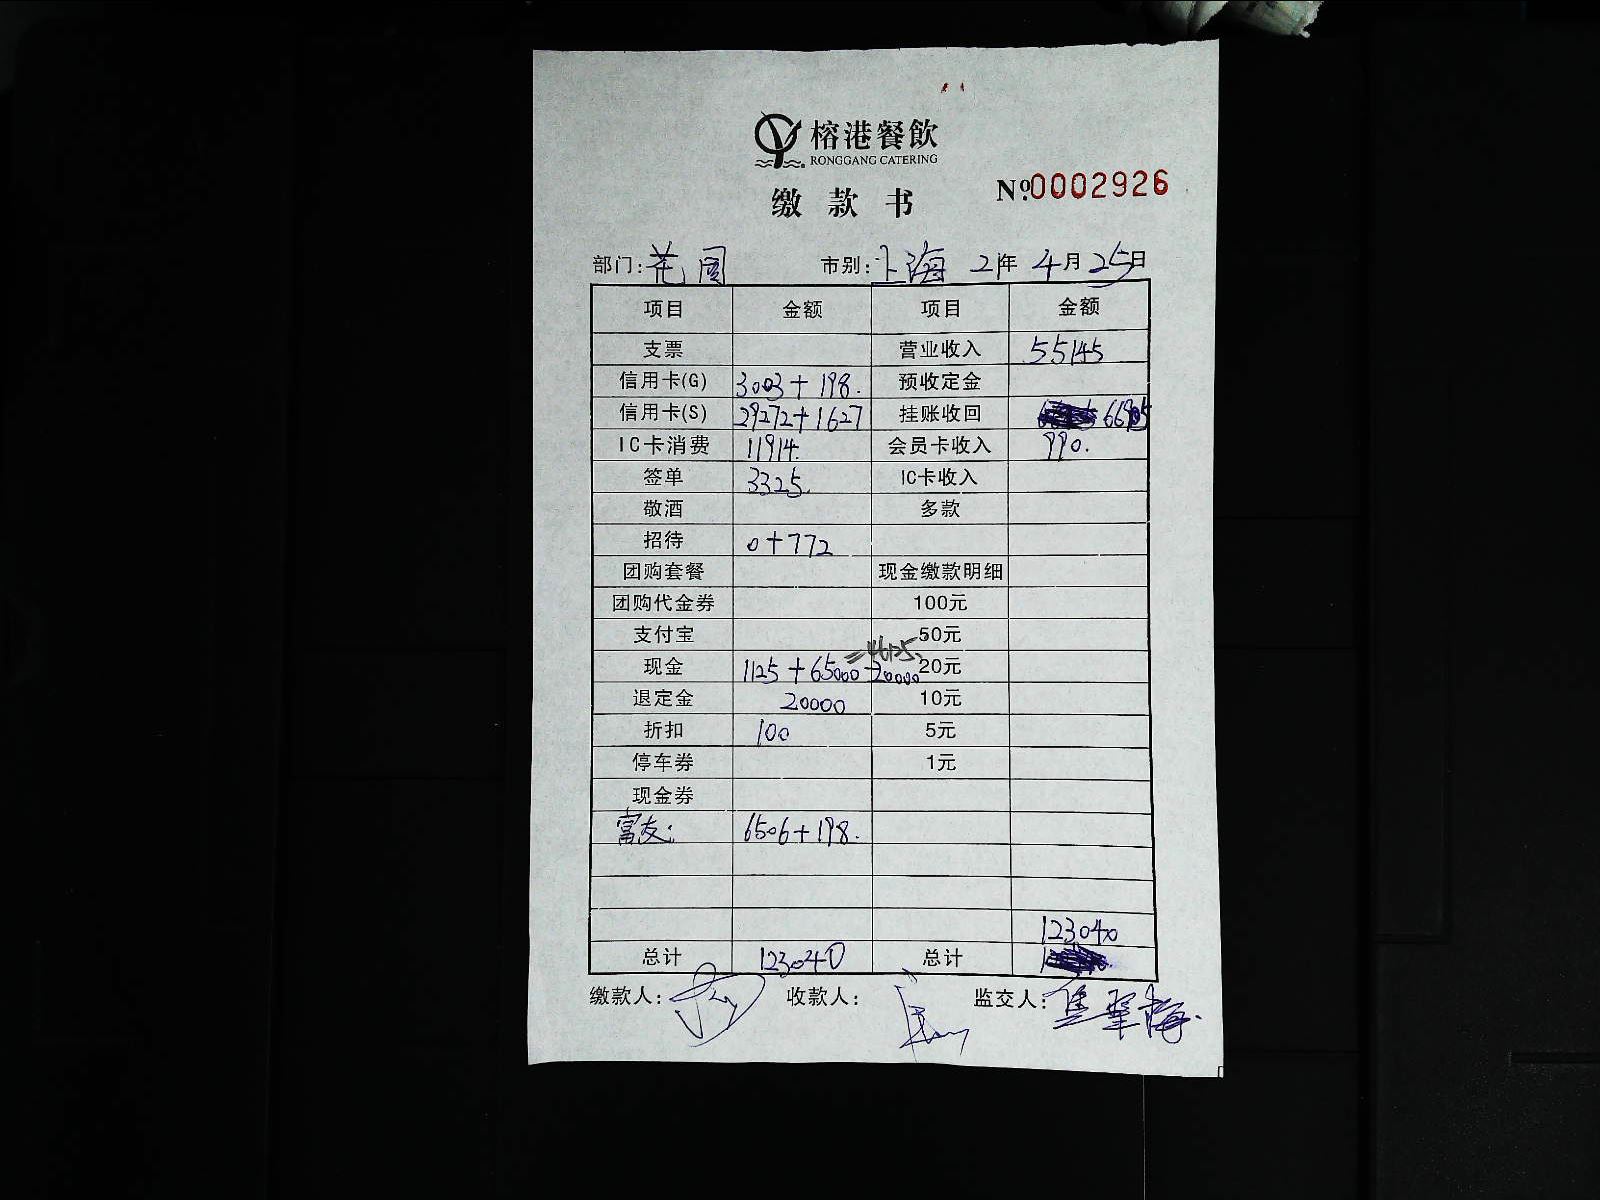 榕港餐飲
RONGGANG CATERING
缴款书 №0002926
部门: 花园 市别: 上海 21年 4月 25日
项目 金额 项目 金额
支票 营业收入 55145
信用卡(G) 3003+198. 预收定金
信用卡(S) 29272+1627 挂账收回 66905
IC卡消费 11914. 会员卡收入 990.
签单 3325. IC卡收入
敬酒 多款
招待 0+772
团购套餐 现金缴款明细
团购代金券 100元
支付宝 50元
=46125.
现金 1125+65000-20000 20元
退定金 20000 10元
折扣 100 5元
停车券 1元
现金券
富友: 6506+198.
123040
总计 123040 总计
缴款人: 收款人: 监交人: